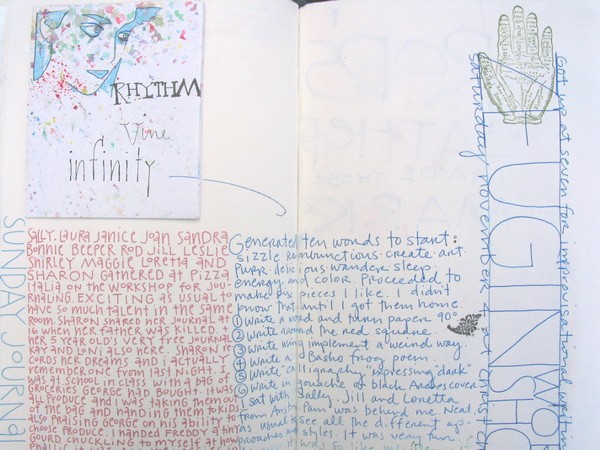 RHYTHM
Vine
infinity
SUNDAY JOURNAL
SALLY. LAURA JANICE JOAN SANDRA
BONNIE BEEPER ROD JILL LESLIE
SHIRLY MAGGIE LORETTA AND
SHARON GATHERED AT PIZZA
ITALIA ON THE WORKSHOP FOR JOUR-
NALING. EXCITING AS USUAL TO
HAVE SO MUCH TALENT IN THE SAME
ROOM. SHARON SHARED HER JOURNAL AT
WHEN HER FATHER WAS KILLED.
HER 5 YEAR OLD'S VERY FREE JOURNAL
KAY AND LONI ALSO HERE. SHARON RE-
CORDS HER DREAMS AND I ACTUALLY
REMEMBER ONE FROM LAST NIGHT. I
WAS AT SCHOOL IN CLASS WITH A BAG OF
GROCERIES GEORGE HAD BOUGHT. IT WAS
ALL PRODUCE AND I WAS TAKING THEM OUT
OF THE BAG AND HANDING THEM TO KIDS
ALSO PRAISING GEORGE ON HIS ABILITY TO
CHOOSE PRODUCE. I HANDED FREDDY A TINY
GOURD CHUCKLING TO MYSELF AT HOW
Generated ten words to start:
sizzle rambunctious create art
purr delicious wander sleep
energy and color. Proceeded to
make six pieces I like. I didn't
know that until I got them home.
① Write a word and turn paper 90°
② Write around the red square
③ Write using implement a weird way.
④ Write a Basho frog poem
⑤ Write "calligraphy" "expressing" dark"
⑥ Write in gouache on black Arches cover
I sat with Sally. Jill and Loretta
from Ann Arbor. Pam was behind me Neal.
as usual to see all the different ap-
proaches and styles. It was very fun.
Saturday November 4 at Childs
UGINISH
WO
Got up at seven for improvisational writing